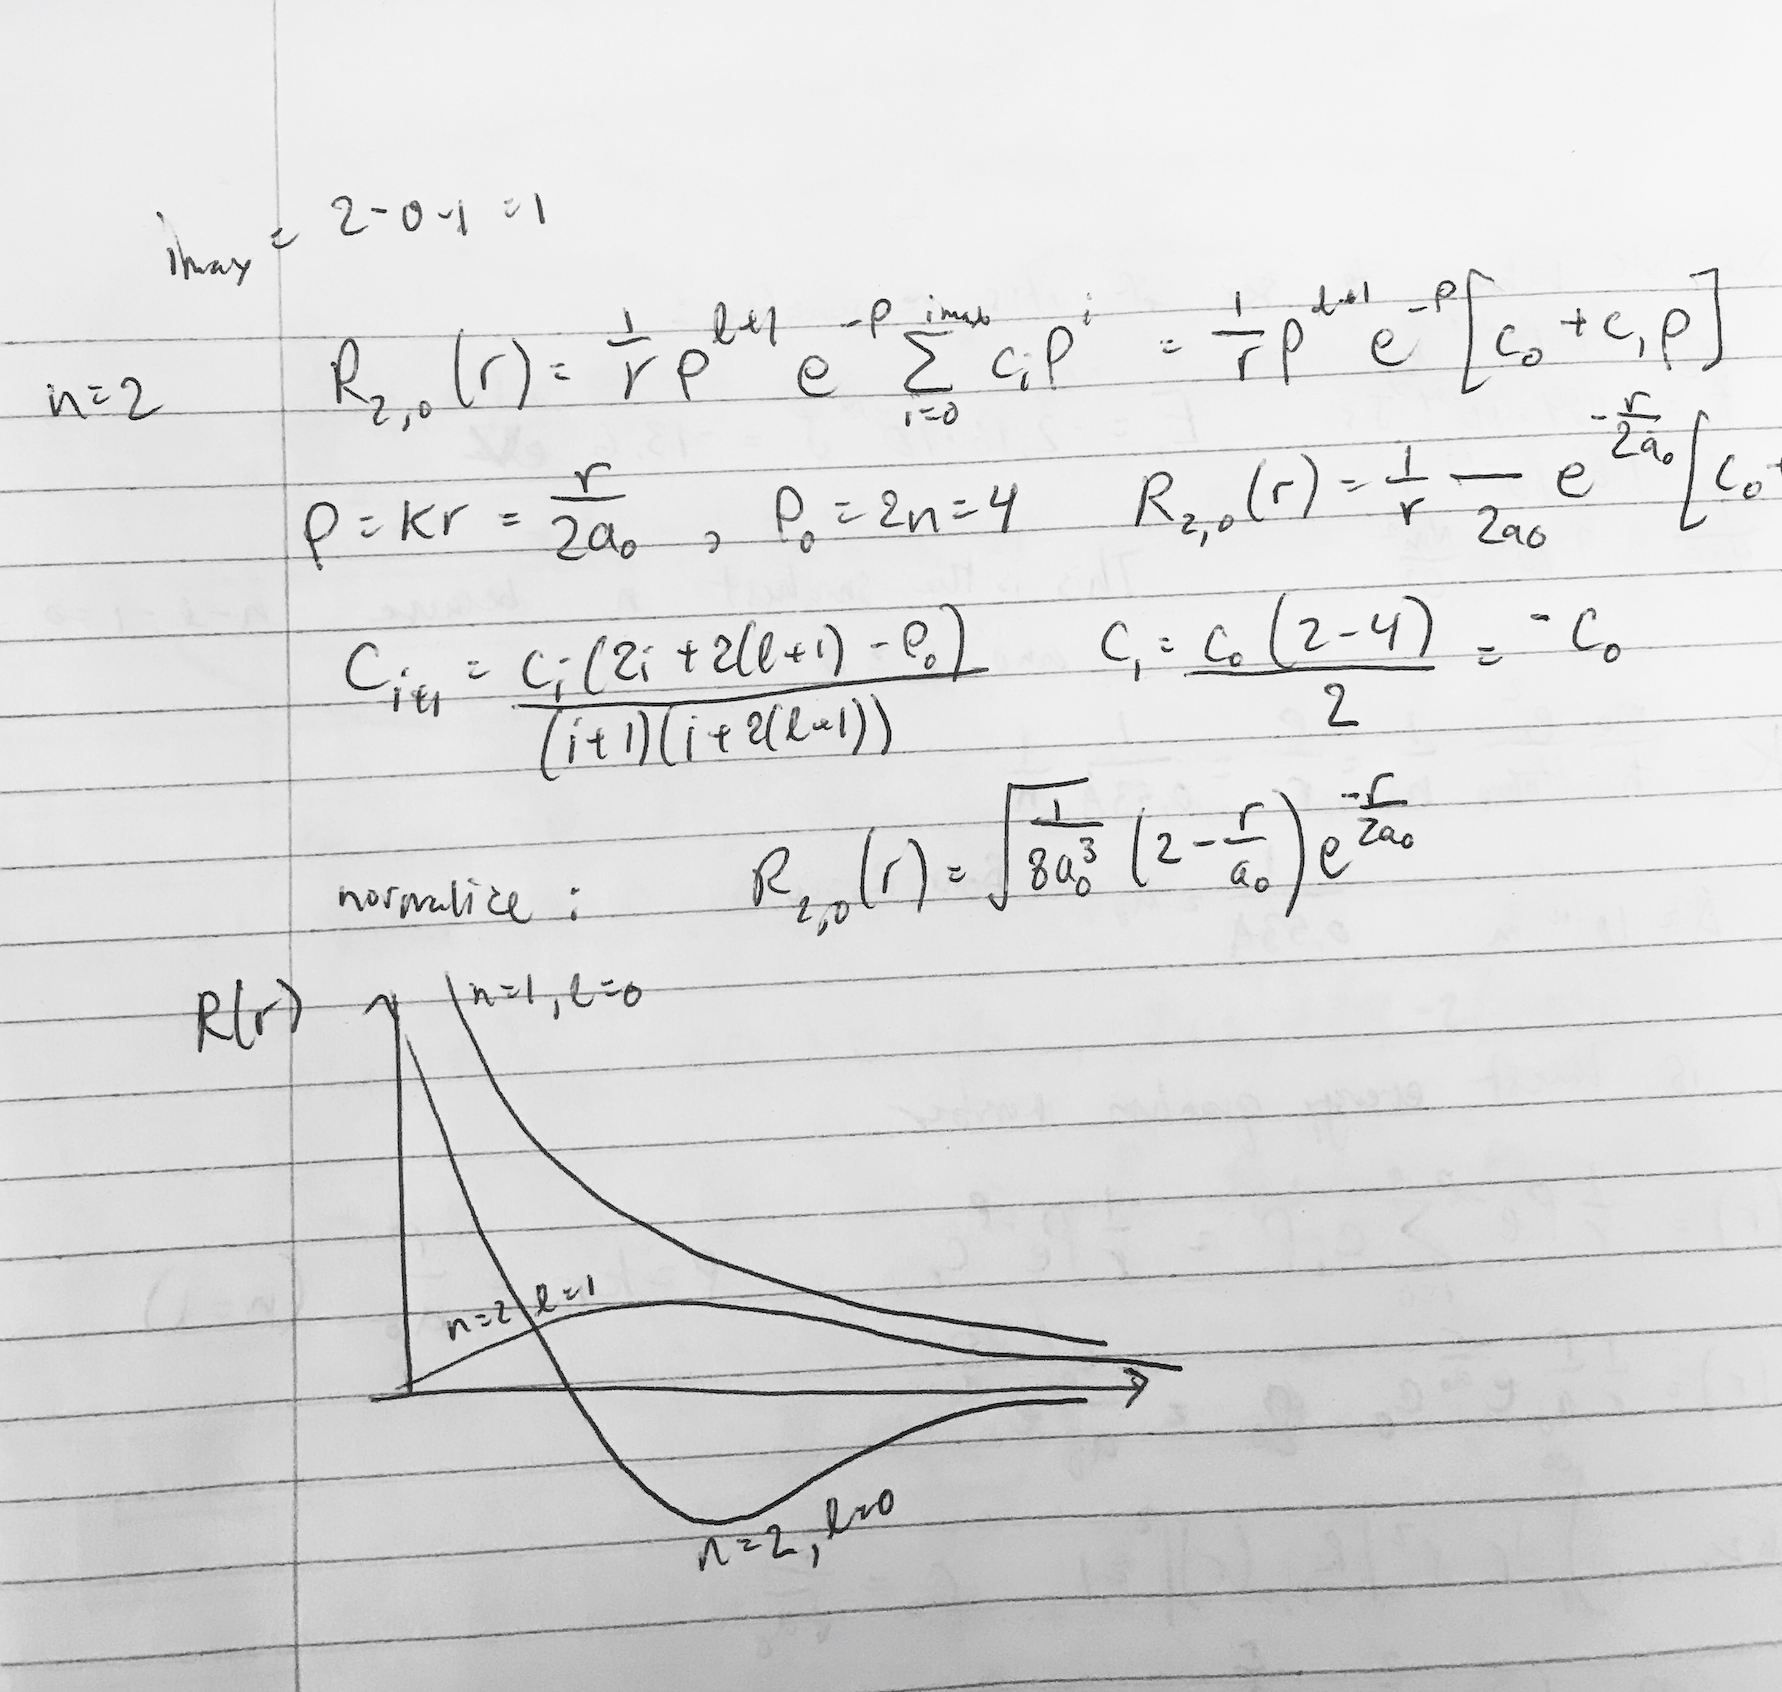 imax = 2-0-1 = 1
n=2 R₂,₀(r) = 1/r ρ^(l+1) e^(-ρ) Σ_(i=0)^(imax) cᵢρ^i = 1/r ρ^(l+1) e^(-ρ) [c₀ + c₁ρ]
ρ = kr = r/(2a₀) , ρ₀ = 2n = 4 R₂,₀(r) = 1/r —/(2a₀) e^(-r/(2a₀)) [c₀+
C_(i+1) = Cᵢ(2i + 2(l+1) - ρ₀)/((i+1)(i+2(l+1))) C₁ = C₀(2-4)/2 = -C₀
normalice : R₂,₀(r) = √(1/(8a₀³)) (2 - r/a₀) e^(-r/(2a₀))
R(r) n=1, l=0
n=2 l=1
n=2, l=0